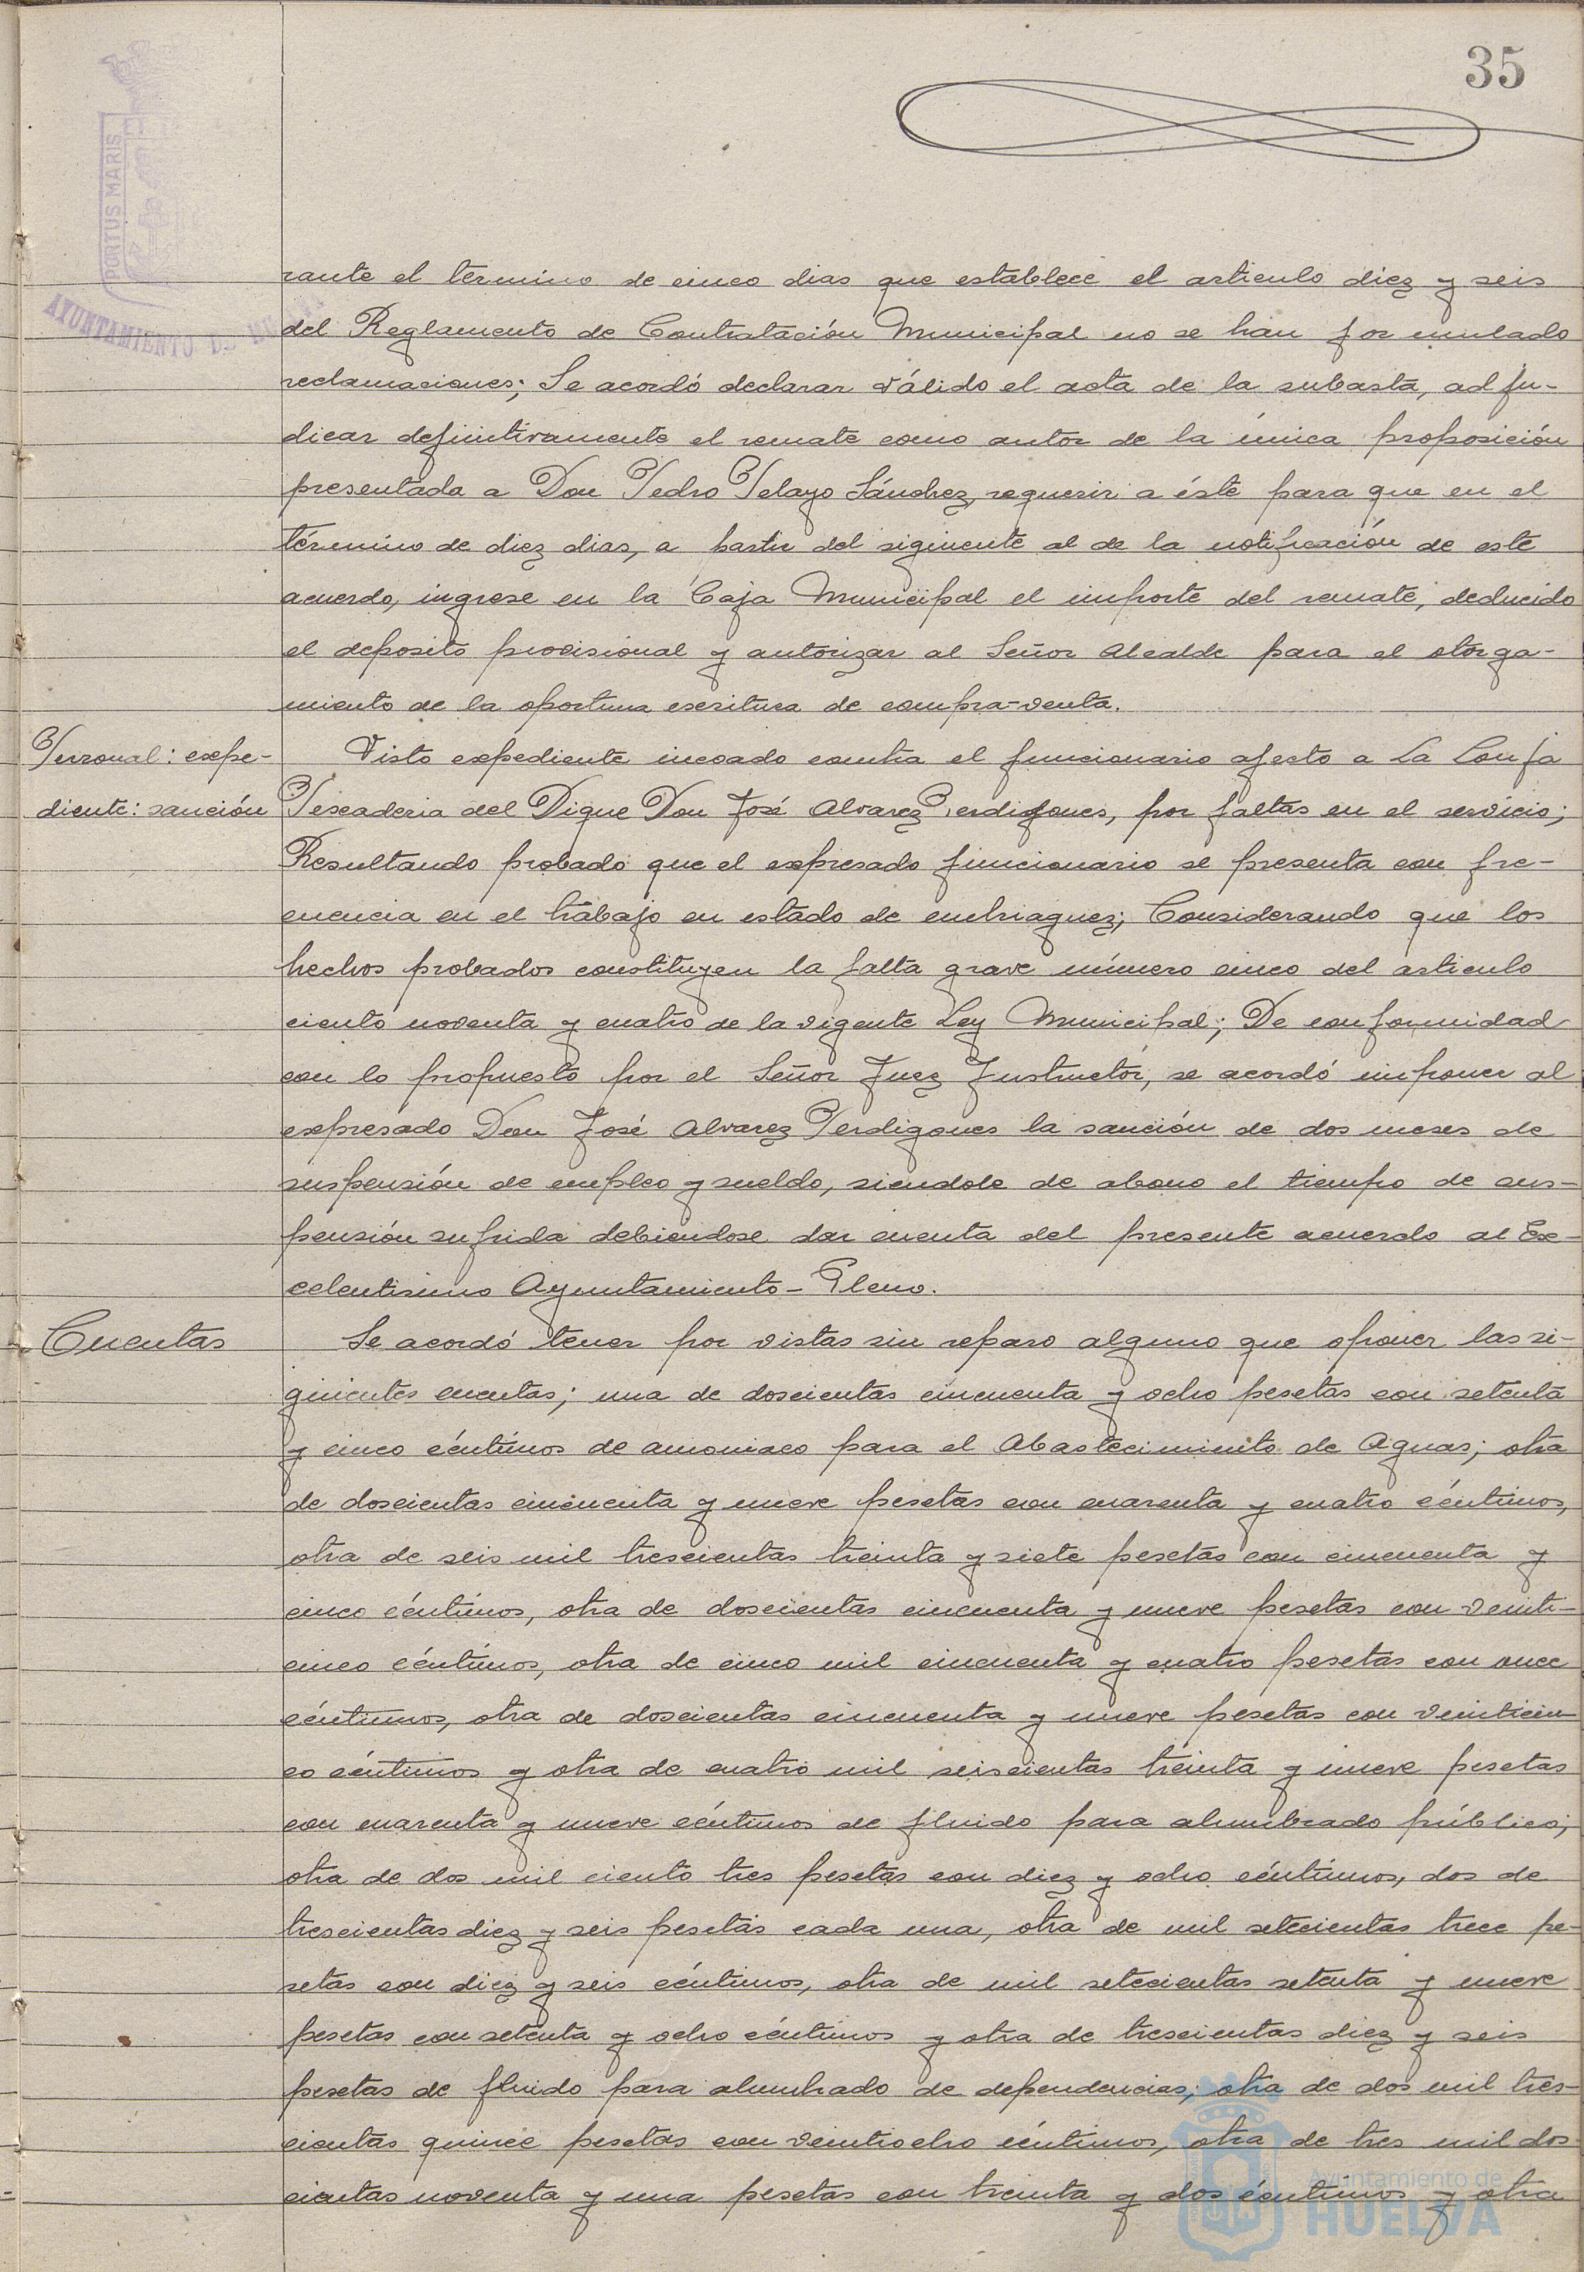 35
PORTUS MARIS
AYUNTAMIENTO DE
rante el termino de cinco dias que establece el articulo diez y seis
del Reglamento de Contratación Municipal no se han formulado
reclamaciones; Se acordó declarar válido el acta de la subasta, adju-
dicar definitivamente el remate como autor de la única proposición
presentada a Don Pedro Pelayo Sánchez, requerir a éste para que en el
término de diez dias, a partir del siguiente al de la notificación de este
acuerdo, ingrese en la Caja Municipal el importe del remate, deducido
el deposito provisional y autorizar al Señor Alcalde para el otorga-
miento de la oportuna escritura de compra-venta.
Personal: expe-
diente: sanción
Visto expediente incoado contra el funcionario afecto a La Lonja
Pescaderia del Dique Don José Alvarez Perdigones, por faltas en el servicio;
Resultando probado que el expresado funcionario se presenta con fre-
cuencia en el trabajo en estado de embriaguez; Considerando que los
hechos probados constituyen la falta grave número cinco del articulo
ciento noventa y cuatro de la vigente Ley Municipal; De conformidad
con lo propuesto por el Señor Juez Instructor, se acordó imponer al
expresado Don José Alvarez Perdigones la sanción de dos meses de
suspensión de empleo y sueldo, siendole de abono el tiempo de sus-
pensión sufrida debiendose dar cuenta del presente acuerdo al Ex-
celentisimo Ayuntamiento-Pleno.
Cuentas
Se acordó tener por vistas sin reparo alguno que oponer las si-
guientes cuentas; una de doscientas cincuenta y ocho pesetas con setenta
y cinco céntimos de amoniaco para el Abastecimiento de Aguas; otra
de doscientas cincuenta y nueve pesetas con cuarenta y cuatro céntimos,
otra de seis mil trescientas treinta y siete pesetas con cincuenta y
cinco céntimos, otra de doscientas cincuenta y nueve pesetas con veinti-
cinco céntimos, otra de cinco mil cincuenta y cuatro pesetas con once
céntimos, otra de doscientas cincuenta y nueve pesetas con veinticin-
co céntimos y otra de cuatro mil seiscientas treinta y nueve pesetas
con cuarenta y nueve céntimos de fluido para alumbrado público;
otra de dos mil ciento tres pesetas con diez y ocho céntimos, dos de
trescientas diez y seis pesetas cada una, otra de mil setecientas trece pe-
setas con diez y seis céntimos, otra de mil setecientas setenta y nueve
pesetas con setenta y ocho céntimos y otra de trescientas diez y seis
pesetas de fluido para alumbrado de dependencias; otra de dos mil tres-
cientas quince pesetas con veintiocho céntimos, otra de tres mil dos-
cientas noventa y una pesetas con treinta y dos céntimos y otra
Ayuntamiento de
HUELVA